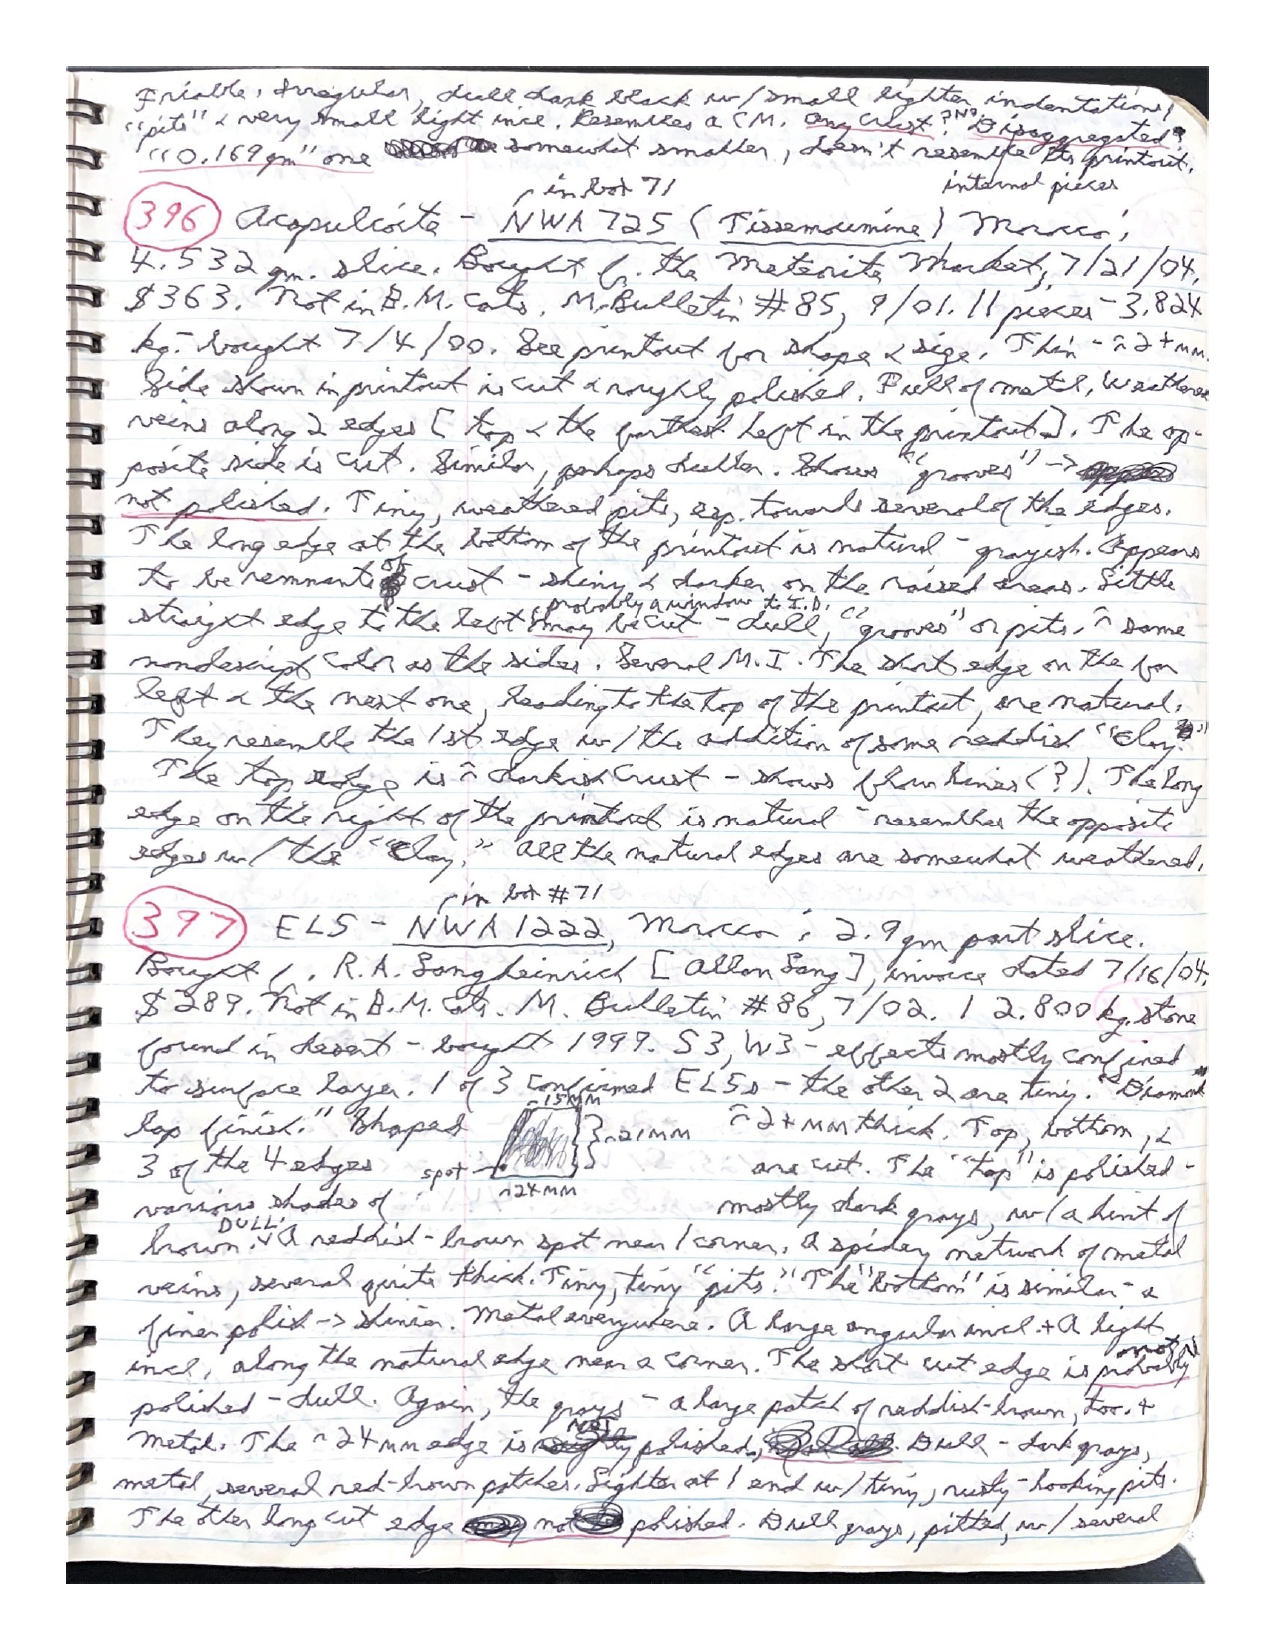 Friable, irregular, dull dark black w/small lighter indentations,
"pits" & very small light incl. Resembles a CM. Any crust? "No" Disaggregated?
"0.169gm" one somewhat smaller, doesn't resemble its printout.
in box 71
internal pieces
396 Acapulcoite - NWA 725 (Tissemoumine) Morocco;
4.532 gm. slice. Bought f. the Meteorite Market, 7/21/04,
$363. Not in B.M. Cats. M. Bulletin #85, 9/01. 11 pieces - 3.824
kg. - bought 7/4/00. See printout for shape & size. Thin - ~2+mm.
Side shown in printout is cut & roughly polished. Full of metal, weathered
veins along 2 edges [top & the farthest left in the printout]. The op-
posite side is cut. Similar, perhaps duller. Shows "grooves" ->
not polished. Tiny, weathered pits, esp. towards several of the edges.
The long edge at the bottom of the printout is natural - grayish. Appears
to be remnants of crust - shiny & darker on the raised areas. Little
probably a window to I.D.
straight edge to the left may be cut - dull, "grooves" or pits. ~ same
nondescript color as the sides. Several M.I. The short edge on the far
left & the next one, leading to the top of the printout, are natural.
They resemble the 1st edge w/the addition of some reddish "clay."
The top edge is ~ darkish crust - shows flow lines(?). The long
edge on the right of the printout is natural - resembles the opposite
edges w/the "Clay." All the natural edges are somewhat weathered.
in box #71
397 EL5 - NWA 1222, Morocco; 2.9gm part slice.
Bought f. R.A. Langheinrich [Allan Lang], invoice dated 7/16/04,
$289. Not in B.M. Cats. M. Bulletin #86, 7/02. 1 2.800 kg. stone
found in desert - bought 1999. S3, W3 - effects mostly confined
to surface layer. 1 of 3 confirmed EL5s - the other 2 are tiny. "Diamond
~15MM
lap finish." Shaped ~21MM ~2+MM thick. Top, bottom, &
3 of the 4 edges spot are cut. The "top" is polished -
~24MM
various shades of mostly dark grays, w/a hint of
DULL.
brown. A reddish-brown spot near 1 corner. A spidery network of metal
veins, several quite thick. Tiny, tiny "pits." The "bottom" is similar - a
finer polish -> shinier. Metal everywhere. A large angular incl. + A light
incl, along the natural edge near a corner. The short cut edge is probably
not
polished - dull. Again, the grays - a large patch of reddish-brown, too. +
NOT
metal. The ~24MM edge is polished. Dull - dark grays,
metal, several red-brown patches. Lighter at 1 end w/tiny, rusty-looking pits.
The other long cut edge not polished. Dull grays, pitted, w/several